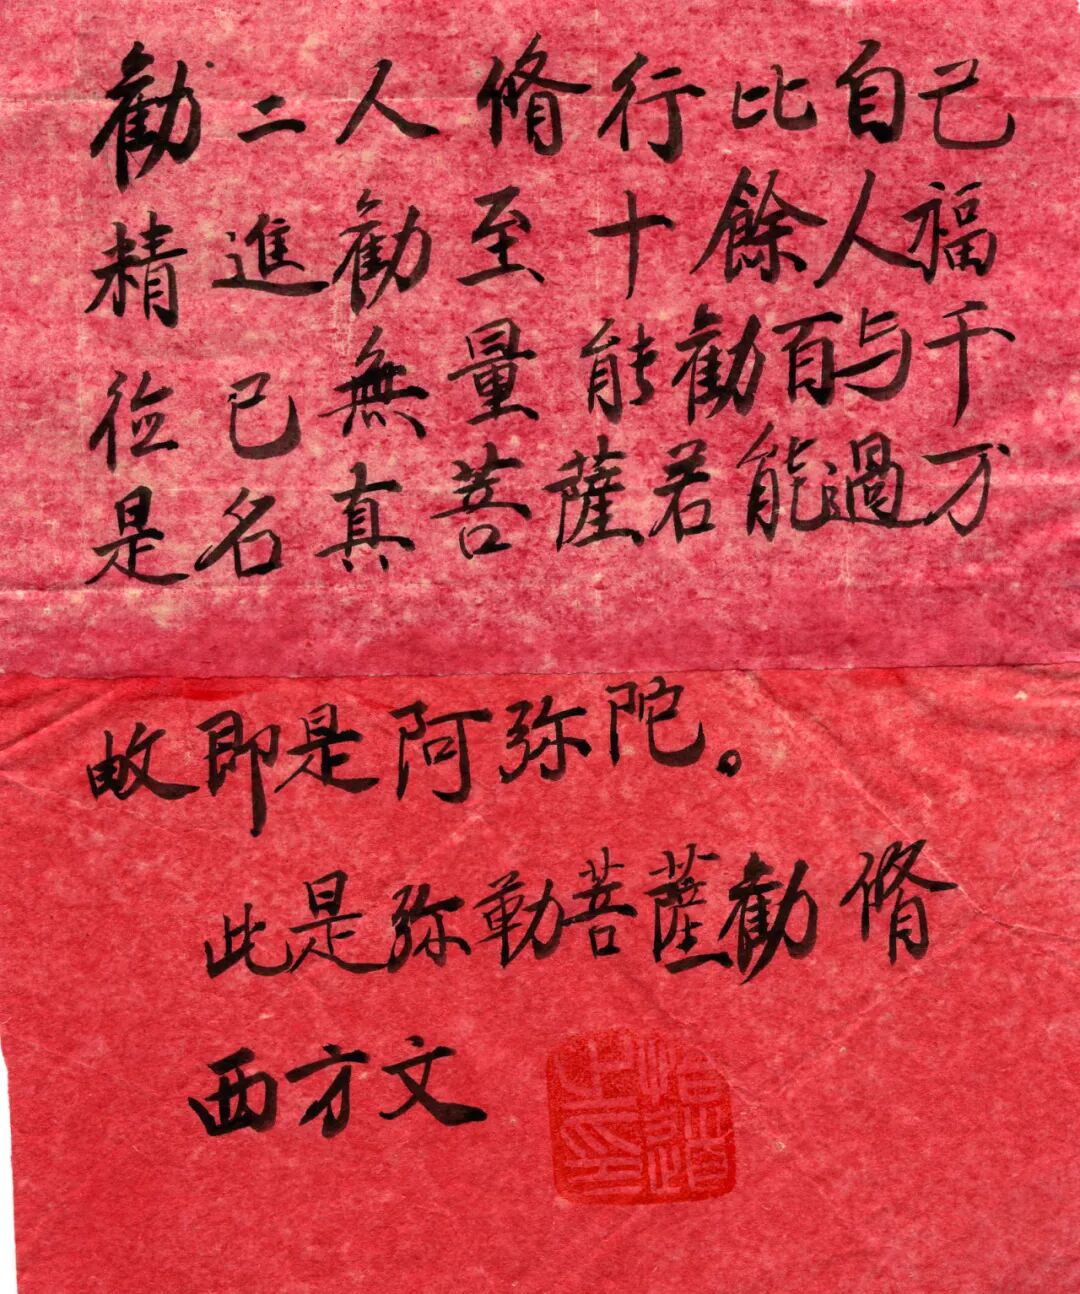 勸二人脩行比自己
精進勸至十餘人福
德已無量能勸百与千
是名真菩薩若能過万
故即是阿弥陀。
此是弥勒菩薩勸脩
西方文